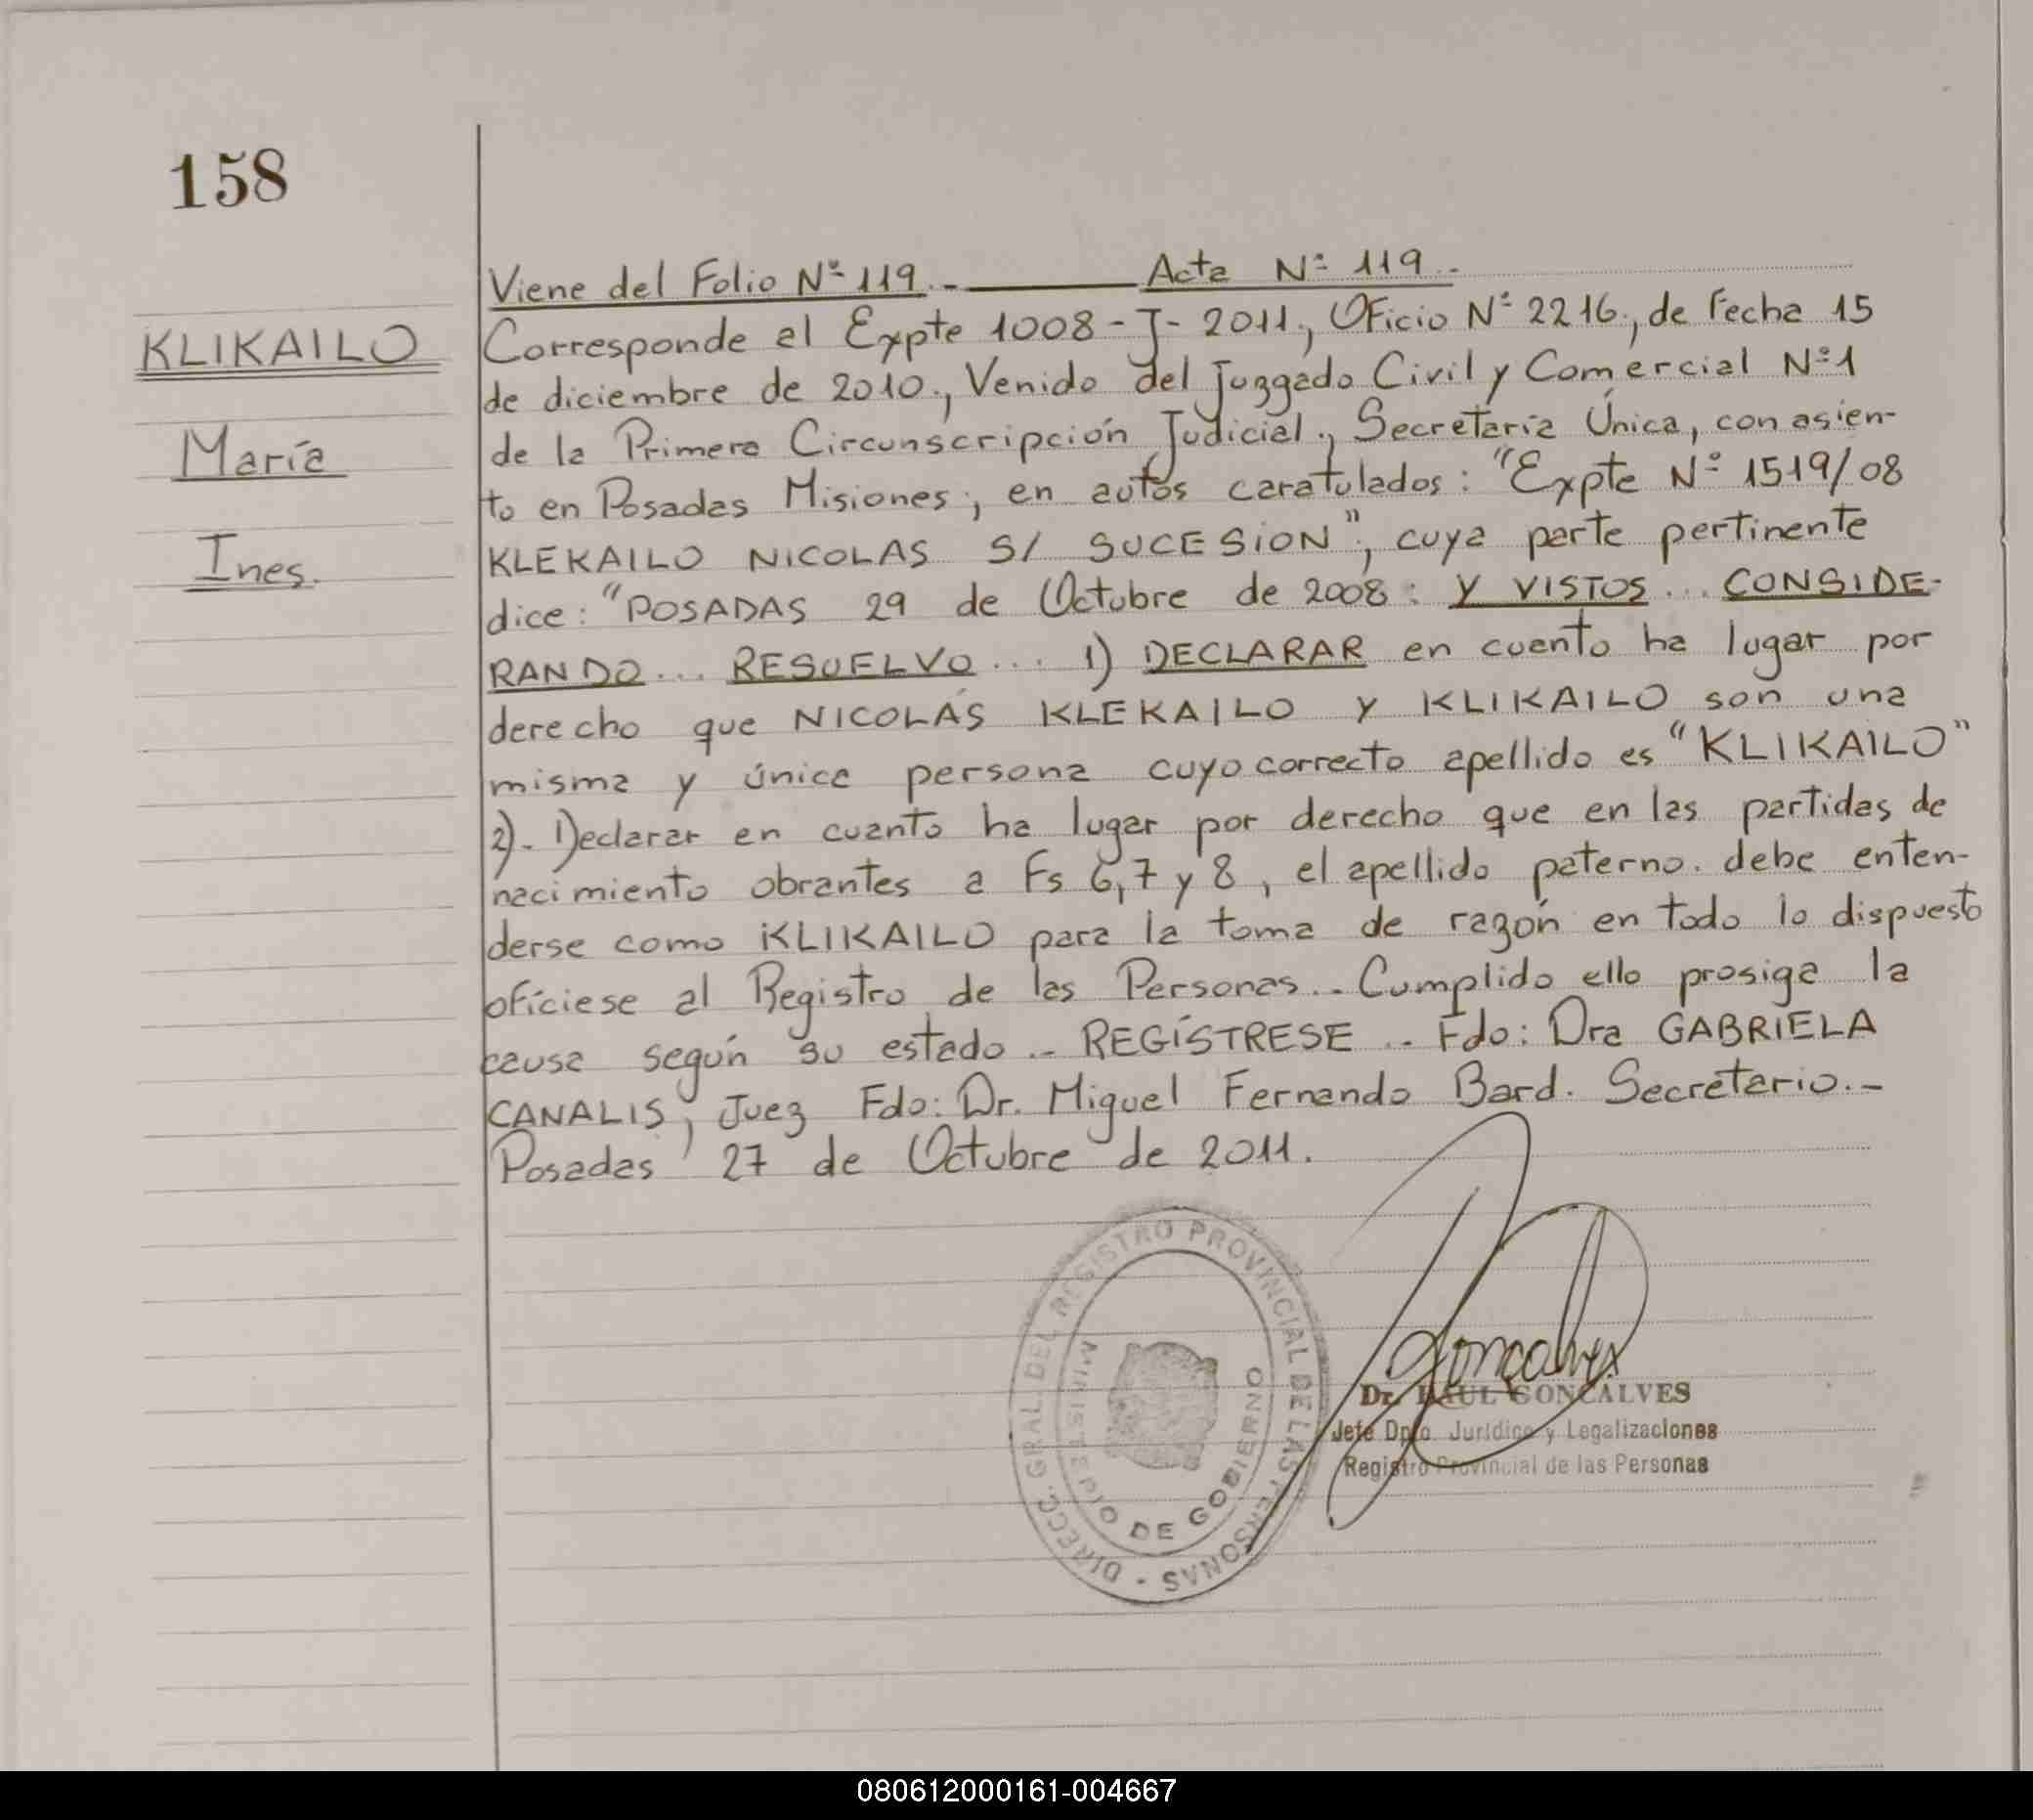 158
KLIKAILO
María
Ines.
Viene del Folio Nº 119.-  Acta Nº 119.-
Corresponde al Expte 1008-J-2011., Oficio Nº 2216., de Fecha 15
de diciembre de 2010., Venido del Juzgado Civil y Comercial Nº1
de la Primera Circunscripción Judicial., Secretaría Única, con asien-
to en Posadas Misiones., en autos caratulados: "Expte Nº 1519/08
KLEKAILO NICOLAS S/ SUCESION", cuya parte pertinente
dice: "POSADAS 29 de Octubre de 2008: Y VISTOS... CONSIDE-
RANDO... RESUELVO... 1) DECLARAR en cuanto ha lugar por
derecho que NICOLÁS KLEKAILO Y KLIKAILO son una
misma y única persona cuyo correcto apellido es "KLIKAILO"
2).- Declarar en cuanto ha lugar por derecho que en las partidas de
nacimiento obrantes a Fs 6,7 y 8, el apellido paterno. debe enten-
derse como KLIKAILO para la toma de razón en todo lo dispuesto
ofíciese al Registro de las Personas.- Cumplido ello prosiga la
causa según su estado.- REGÍSTRESE.- Fdo: Dra GABRIELA
CANALIS, Juez Fdo: Dr. Miguel Fernando Bard. Secretario.-
Posadas 27 de Octubre de 2011.
DIRECC. GRAL. DEL REGISTRO PROVINCIAL DE LAS PERSONAS -
MINISTERIO DE GOBIERNO
Goncalves
Dr. RAUL GONCALVES
Jefe Dpto. Jurídico y Legalizaciones
Registro Provincial de las Personas
080612000161-004667